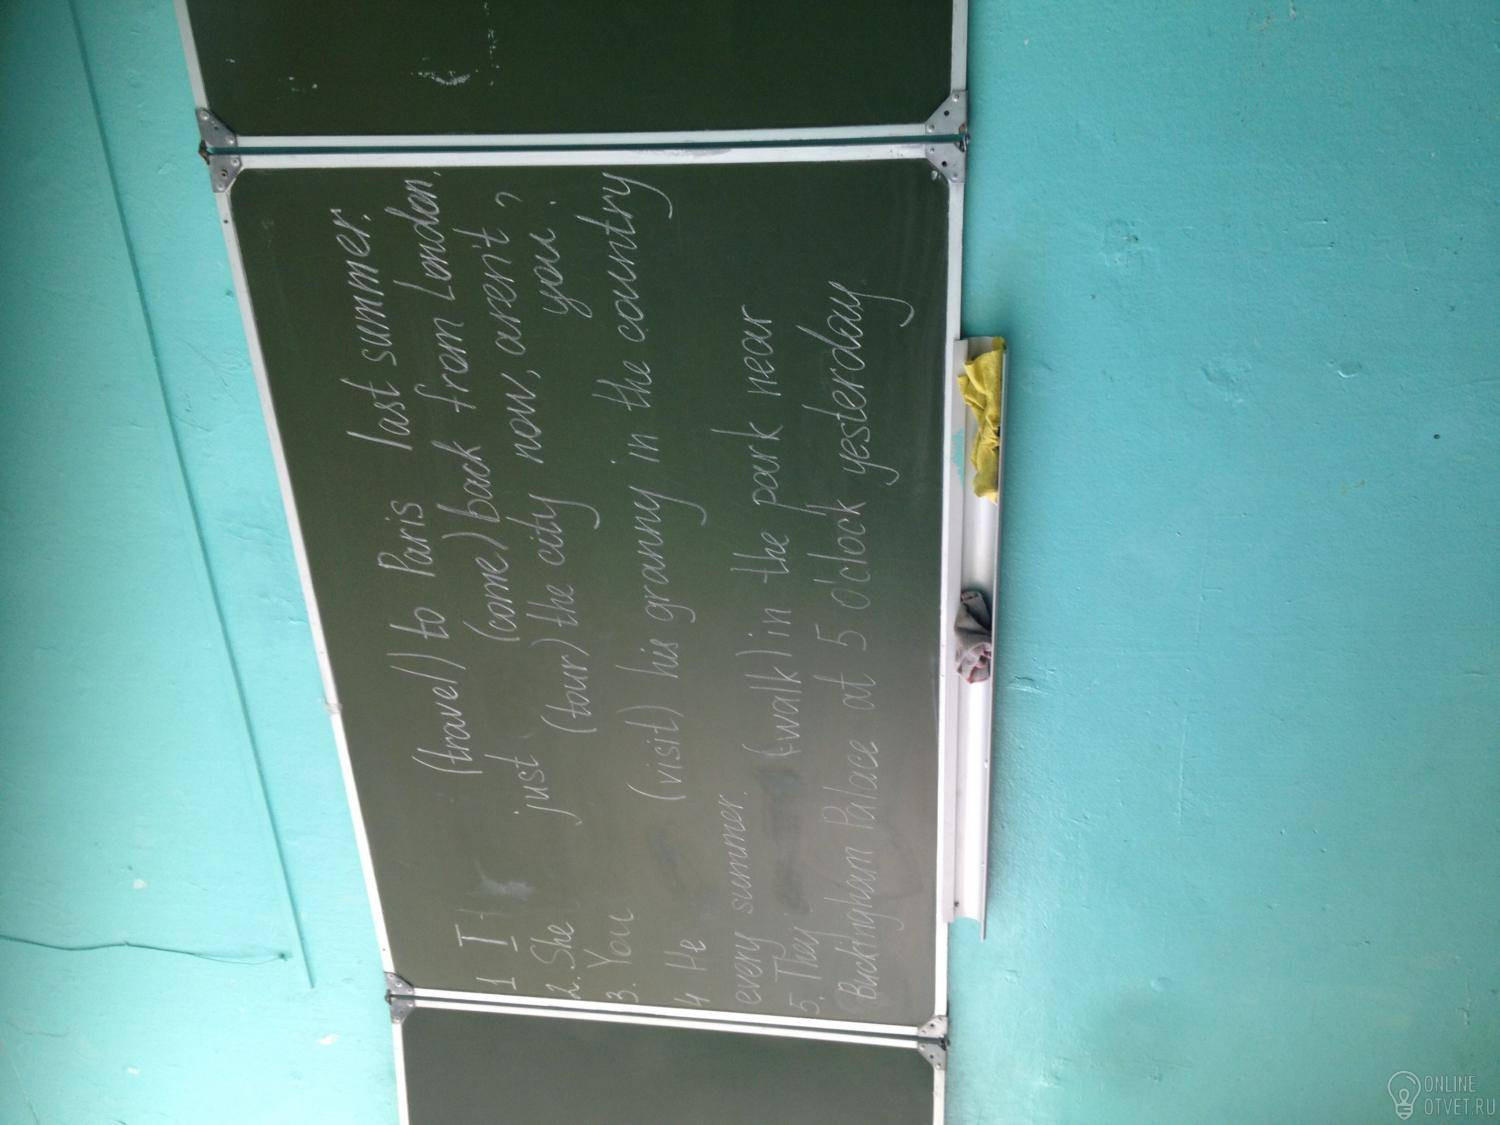 1 I (travel) to Paris last summer.
2. She just (come) back from London.
3. You (tour) the city now, aren't you?
4 He (visit) his granny in the country
every summer.
5. They (walk) in the park near
Buckingham Palace at 5 o'clock yesterday
ONLINE
OTVET.RU